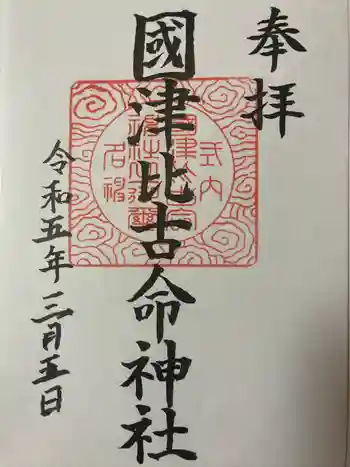 奉拝
國津比古命神社
令和五年三月五日
式内
名神